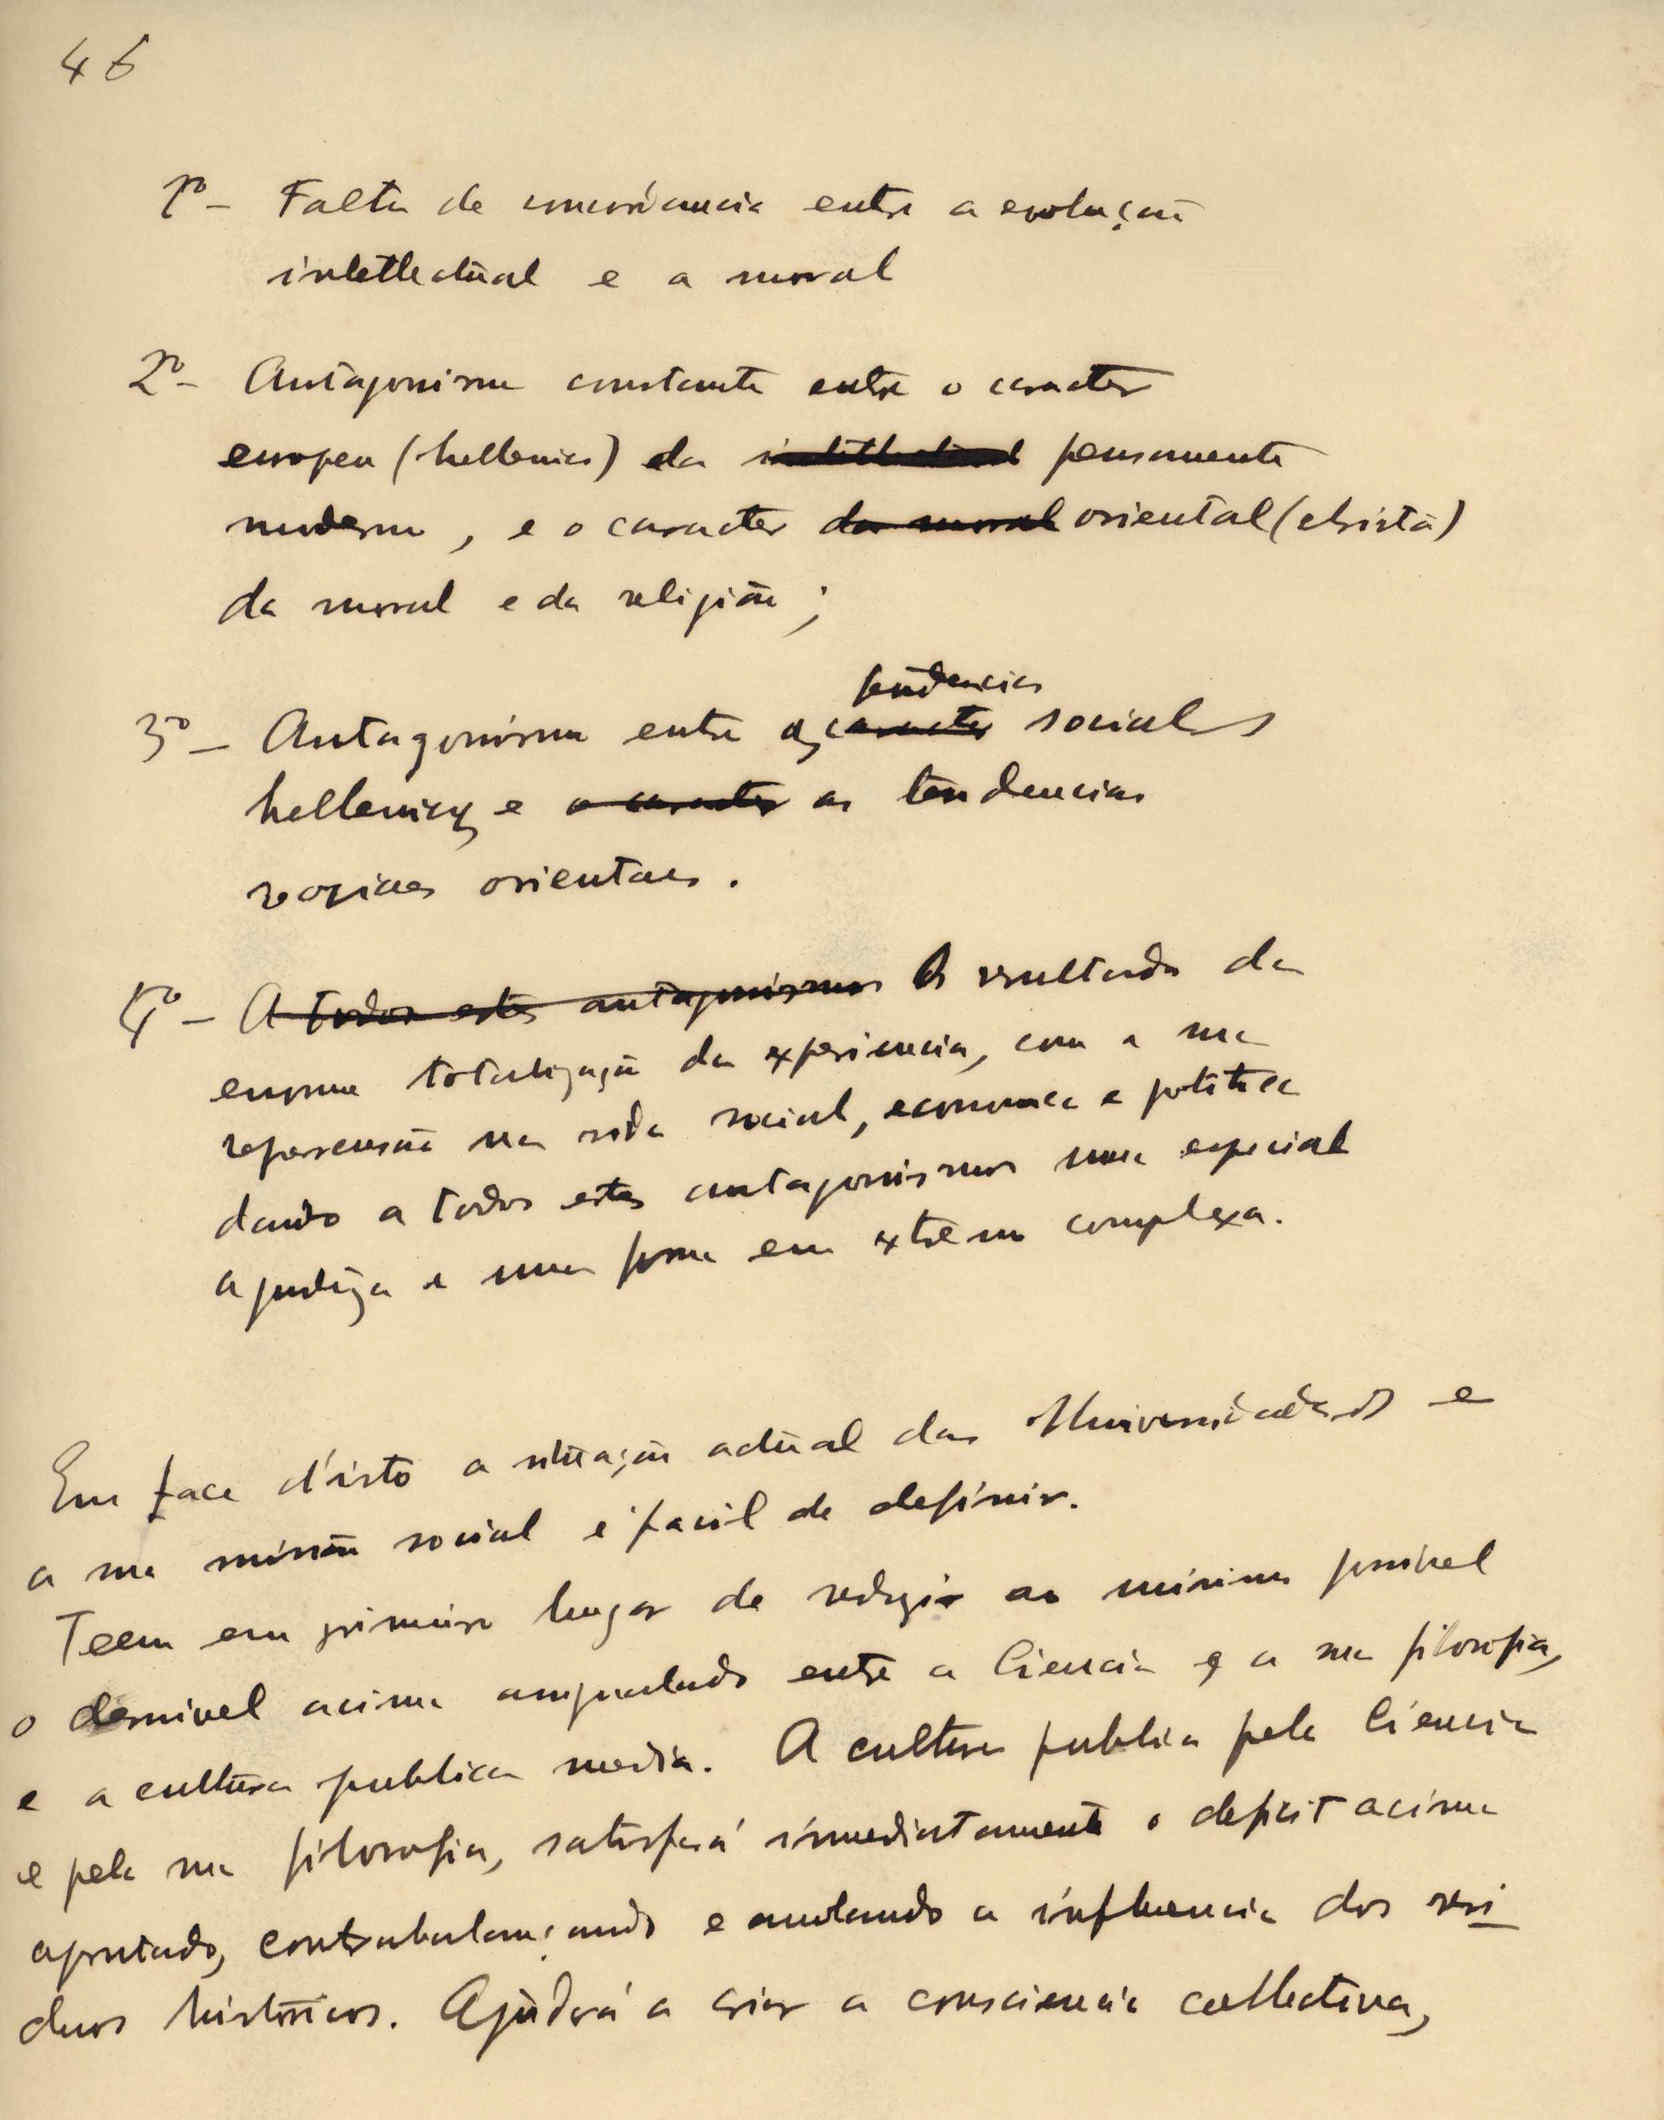 46
1º - Falta de concordancia entre a evolução
intellectual e a moral
2º - Antagonismo constante entre o caracter
europeu (hellenico) do intellectual pensamento
moderno, e o caracter da moral oriental (christã)
da moral e da religião;
3º - Antagonismo entre as tendencias caracter sociaes
hellenicas e o caracter as tendencias
sociaes orientaes.
4º - A todos estes antagonismos O resultado da
enorme totalização da experiencia, com a sua
repercussão na vida social, economica e politica
dando a todos estes antagonismos uma especial
agudeza e uma forma em extremo complexa.
Em face d'isto a situação actual das Universidades e
a sua missão social é facil de definir.
Teem em primeiro lugar de reduzir ao minimo possivel
o desnivel acima apontado entre a Ciencia e a sua filosofia,
e a cultura publica media. A cultura publica pela Ciencia
e pela sua filosofia, satisfará immediatamente o deficit acima
apontado, contrabalançando e anulando a influencia dos resi
duos históricos. Ajudará a criar a consciencia collectiva,